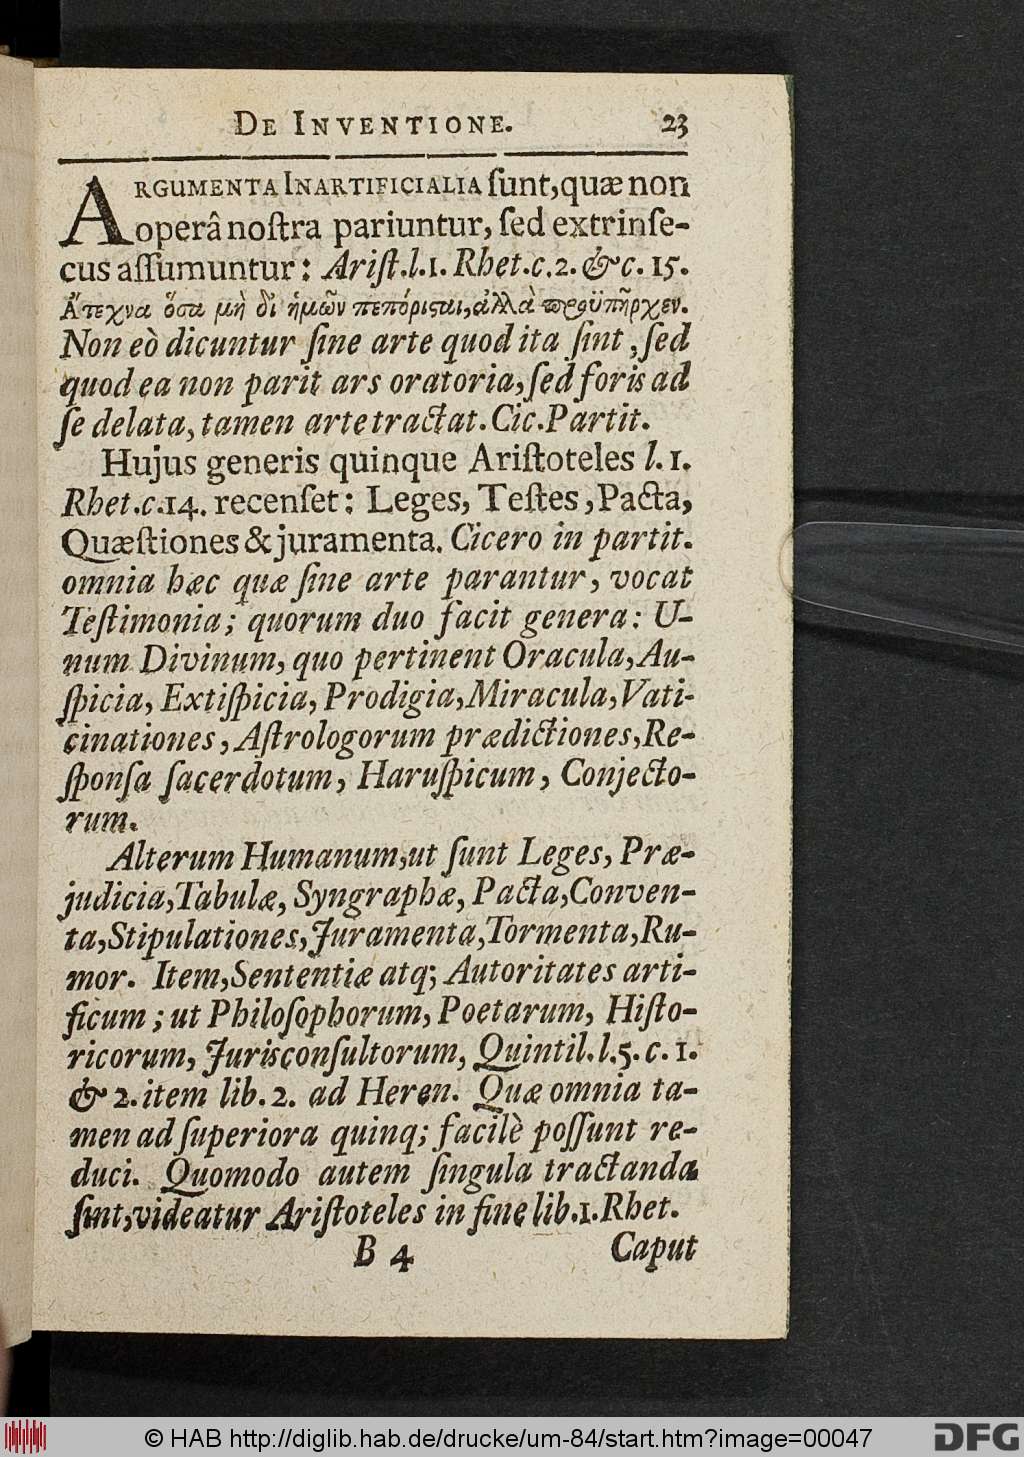 DE INVENTIONE. 23
ARGUMENTA INARTIFICIALIA ſunt, quæ non
operâ noſtra pariuntur, ſed extrinſe-
cus aſſumuntur: Ariſt. l. 1. Rhet. c. 2. & c. 15.
Ἄτεχνα ὅσα μὴ δι ἡμῶν πεπόριςαι, ἀλλὰ πρϋπῆρχεν.
Non eò dicuntur ſine arte quod ita ſint, ſed
quod ea non parit ars oratoria, ſed foris ad
ſe delata, tamen arte tractat. Cic. Partit.
Hujus generis quinque Ariſtoteles l. 1.
Rhet. c. 14. recenſet: Leges, Teſtes, Pacta,
Quæſtiones & juramenta. Cicero in partit.
omnia hæc quæ ſine arte parantur, vocat
Teſtimonia; quorum duo facit genera: U-
num Divinum, quo pertinent Oracula, Au-
ſpicia, Extiſpicia, Prodigia, Miracula, Vati-
cinationes, Aſtrologorum prædictiones, Re-
ſponſa ſacerdotum, Haruſpicum, Conjecto-
rum.
Alterum Humanum, ut ſunt Leges, Præ-
judicia, Tabulæ, Syngraphæ, Pacta, Conven-
ta, Stipulationes, Juramenta, Tormenta, Ru-
mor. Item, Sententiæ atq; Autoritates arti-
ficum; ut Philoſophorum, Poetarum, Hiſto-
ricorum, Jurisconſultorum, Quintil. l. 5. c. 1.
& 2. item lib. 2. ad Heren. Quæ omnia ta-
men ad ſuperiora quinq; facilè poſſunt re-
duci. Quomodo autem ſingula tractanda
ſint, videatur Ariſtoteles in fine lib. 1. Rhet.
B 4 Caput
© HAB http://diglib.hab.de/drucke/um-84/start.htm?image=00047
DFG